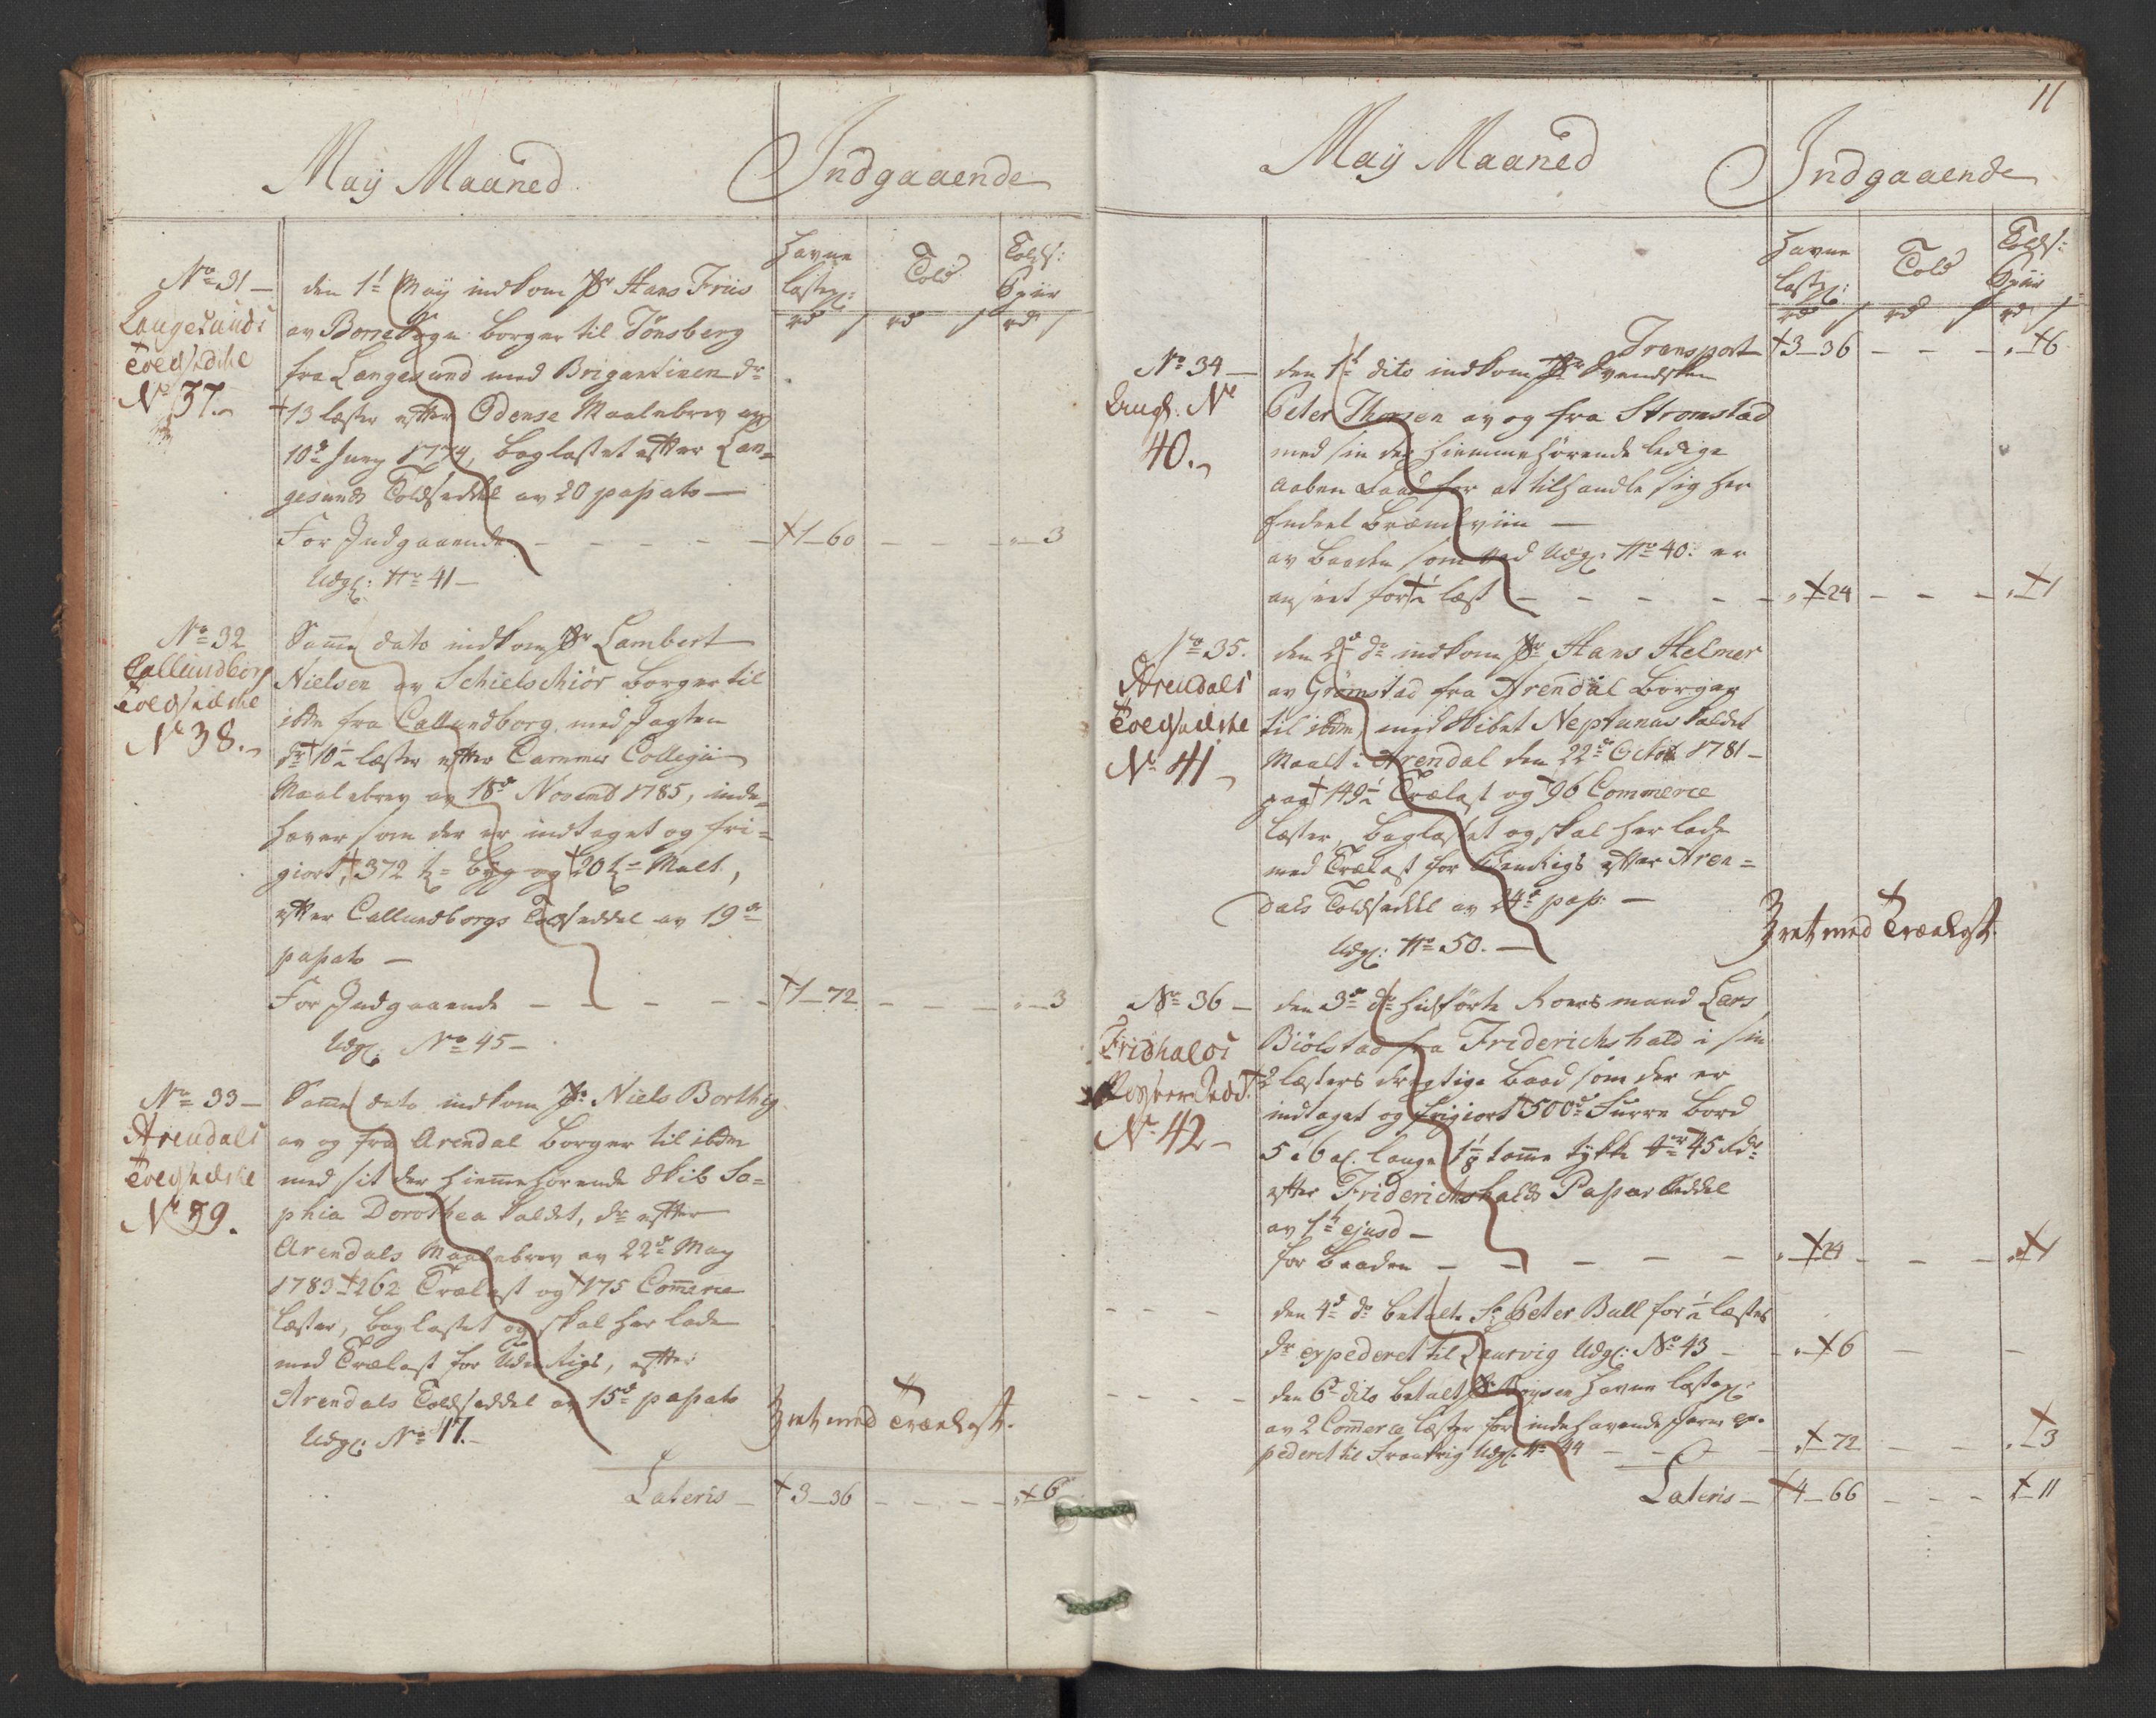 May Maaned
Indgaaende
Havne
lastep:
Told
Tolds:
Spiir
rd s rd s rd s
No 31
Langesunds
Toldseddel
No 37.
den 1t May indkom Sr Hans Friis
av Borre Sogn borger til Tönsberg
fra Langesund med Brigantinen dr
13 læster efter Odense Maalebrev av
10de Juny 1774, baglastet efter Lan=
gesunds Toldseddel av 20 passato
For Indgaaende - - - - - 1-60 - - - „-3
Udg: No 41
No 32
Callundborg
Toldseddel
No 38.
Samme dato indkom Sr Lambert
Nielsen av Schielschiör borger til
ibdm fra Callundborg med Jagten
dr 10½ læster efter Cammer Collegii
Maalebrev av 18de Novemb 1785, inde=
haver som der er indtaget og fri=
giort, 372 tr Byg og 20 tr Malt,
efter Callundborgs Toldseddel av 19de
passato
For Indgaaende - - - - - 1-72 - - - „-3
Udg: No 45
No 33
Arendals
Toldseddel
No 39.
Samme dato indkom Sr Niels Borthig
av og fra Arendal borger til ibdm
med sit der hiemmehörende Skib So=
phia Dorothea kaldet, dr efter
Arendals Maalebrev av 22de May
1783 262 Trælast og 175 Commerce
læster, baglastet og skal her lade
med Trælast for Udenrigs, efter
Arendals Toldseddel av 15de passato
Udg: No 17.
med Trælast.
Lateris 3-36 - - - - „-6
11
May Maaned
Indgaaende
Havne
lastep:
Told
Tolds:
Spiir
rd s rd s rd s
Transport 3-36 - - - „-6
No 34
Laugs: No
40.
den 1t dito indkom Sr Svendsken
Peter Thorsen av og fra Stromstad
med sin der hiemmehörende ledige
aaben Baad for at tilhandle sig her
endeel Brændeviin
av baaden som ved Udg: No 40. er
anseet for ½ læst - - - - - „-24 - - - „-1
No 35.
Arendals
Toldseddel
No 41
den 2de do indkom Sr Hans Helmer
av Grömstad fra Arendal borger
til ibdm, med Skibet Neptunus kaldet
Maalt i Arendal den 22de Octob 1781
paa 149½ Trælast og 96 Commerce
læster, baglastet og skal her lade
med Trælast for Udenrigs efter Aren=
dals Toldseddel av 24de pass:
Udg: No 50.
med Trælast.
No 36
Fridhalds
Passeer Sedd:
No 42
den 3de do hidförte Roersmand Lars
Biölstad fra Friderichshald i sin
2 læsters drægtige baad som der er
indtaget og frigiort 500de Furre bord
5 á 6 al. lange 1⅛ tomme tykke 45 rdr
efter Friderichshalds Passeer Seddel
av 1t ejusd
for baaden - - - - - „-24 - - - „-1
- - - den 4de do betalte Sr Peter Bull for ½ læsters
dr expederet til Laurvig Udg: No 43 - - „-6 - -
- - - - den 6te dito betalt Sr Boysen havne lastep:
av 2 Commerce læster for indehavende ex=
pederet til Udg: No 44 - - - - „-72 - - „-3
Lateris 4-66 - - - „-11